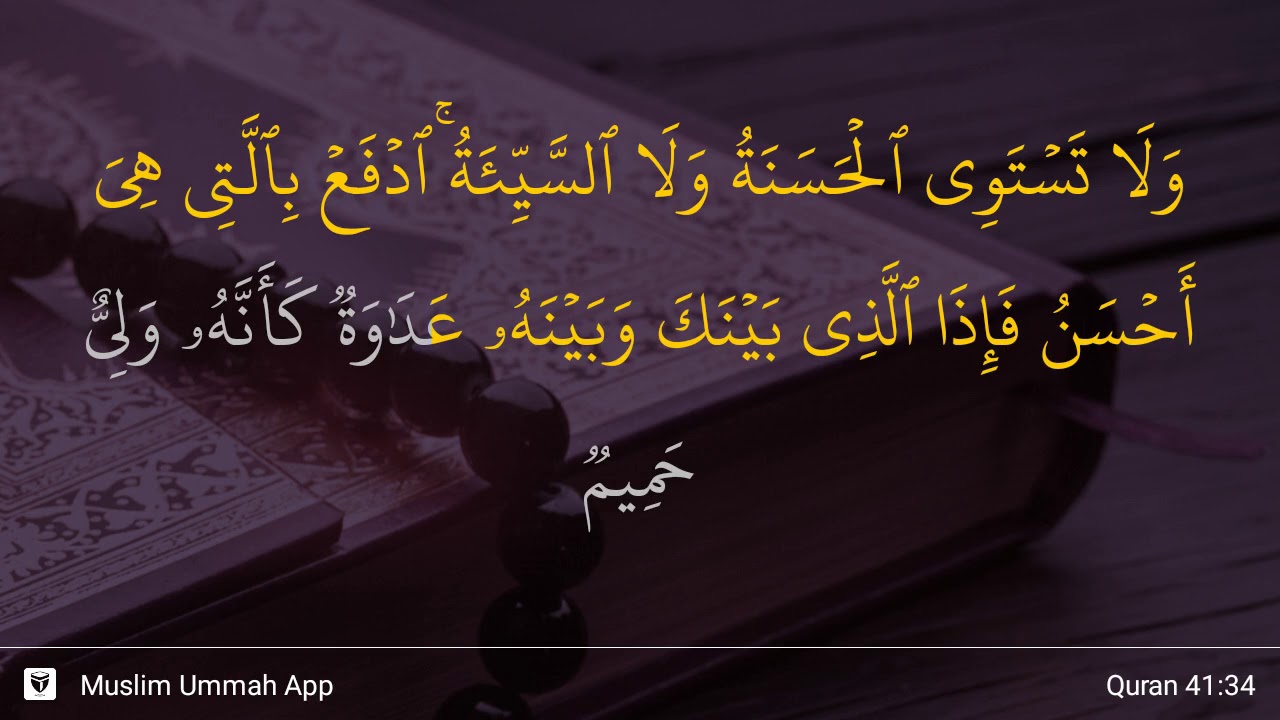 وَلَا تَسۡتَوِی ٱلۡحَسَنَةُ وَلَا ٱلسَّیِّئَةُۚ ٱدۡفَعۡ بِٱلَّتِی هِیَ
أَحۡسَنُ فَإِذَا ٱلَّذِی بَیۡنَكَ وَبَیۡنَهُۥ عَدَ ٰ⁠وَةࣱ كَأَنَّهُۥ وَلِیٌّ
حَمِیمࣱ
Muslim Ummah App
Quran 41:34